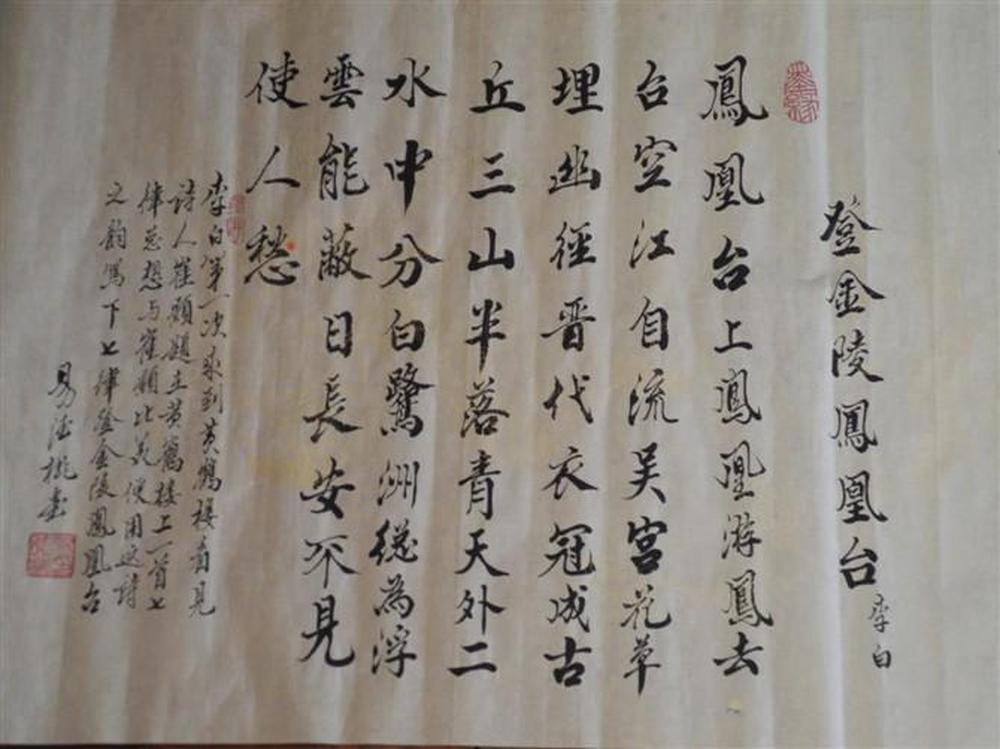 登金陵鳳凰台
李白
鳳凰台上鳳凰游鳳去
台空江自流吴宫花草
埋幽徑晋代衣冠成古
丘三山半落青天外二
水中分白鷺洲總為浮
雲能蔽日長安不見
使人愁
李白第一次来到黄鶴楼看見
诗人崔颢題在黄鶴楼上一首七
律总想与崔颢比美便用此诗
之韵写下七律登金陵鳳凰台
易德桃書